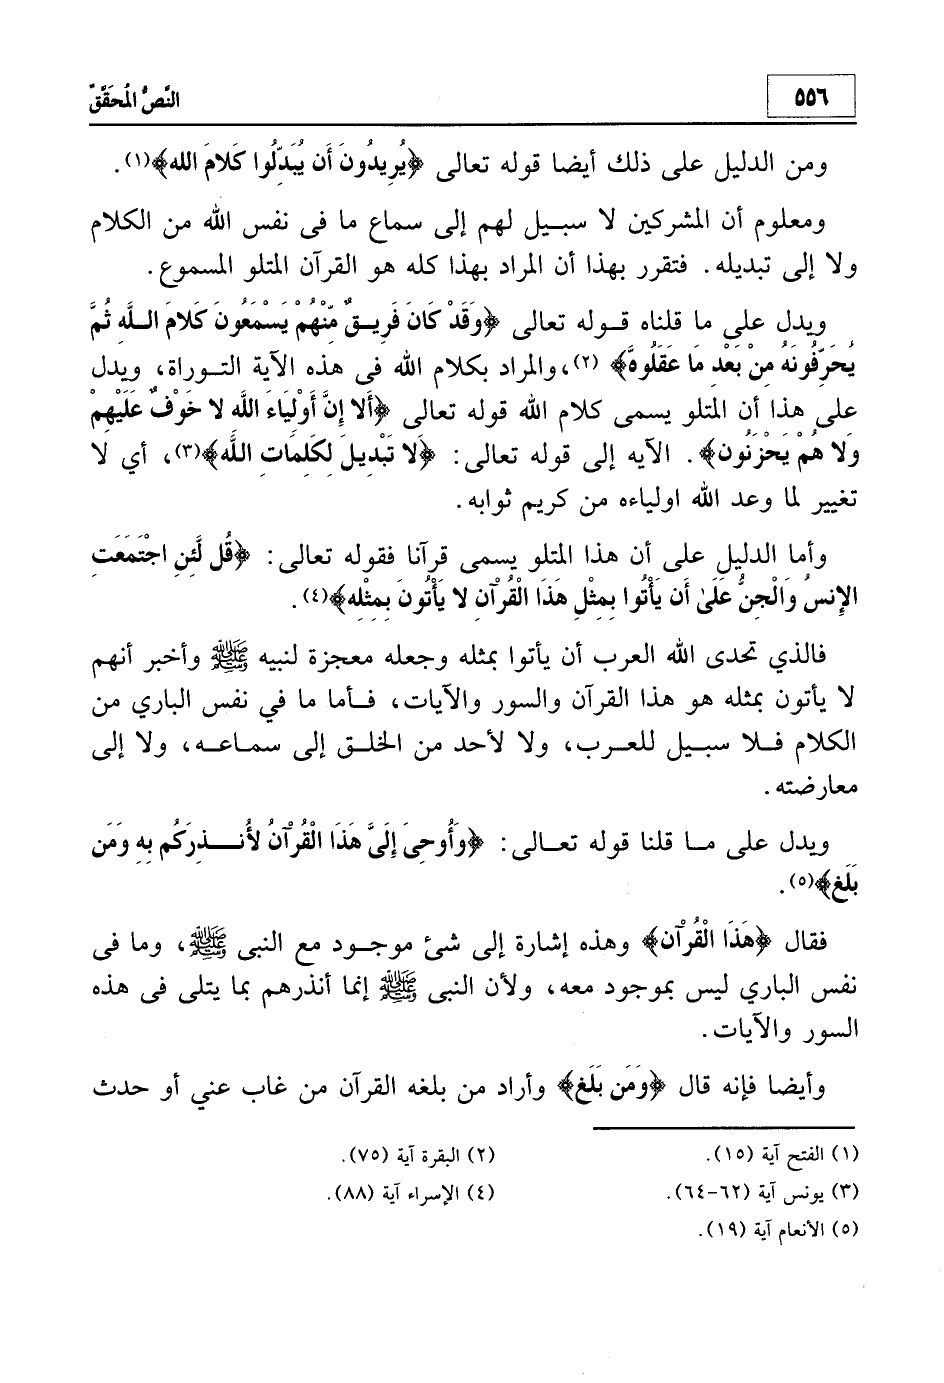 ٥٥٦
النَّصُّ المُحَقَّقْ
ومن الدليل على ذلك أيضا قوله تعالى ﴿يُرِيدُونَ أَن يُبَدِّلُوا كَلامَ الله﴾(١).
ومعلوم أن المشركين لا سبيل لهم إلى سماع ما فى نفس الله من الكلام
ولا إلى تبديله. فتقرر بهذا أن المراد بهذا كله هو القرآن المتلو المسموع.
ويدل على ما قلناه قوله تعالى ﴿وَقَدْ كَانَ فَرِيقٌ مِّنْهُمْ يَسْمَعُونَ كَلامَ اللَّه ثُمَّ
يُحَرِّفُونَهُ مِنْ بَعْد مَا عَقَلُوهَُ﴾ (٢)، والمراد بكلام الله فى هذه الآية التوراة، ويدل
على هذا أن المتلو يسمى كلام الله قوله تعالى ﴿أَلا إِنَّ أَوْلِيَاءَ اللَّه لا خَوْفٌ عَلَيْهِمْ
وَلا هُمْ يَحْزَنُون﴾. الآيه إلى قوله تعالى: ﴿لا تَبْدِيلَ لكَلمَات اللَّه﴾(٣)، أي لا
تغيير لما وعد الله اولياءه من كريم ثوابه.
وأما الدليل على أن هذا المتلو يسمى قرآنا فقوله تعالى: ﴿قُل لَّئِنِ اجْتَمَعَت
الإنسُ وَالْجِنُّ عَلَىٰ أَن يَأْتُوا بِمثْلِ هَذَا الْقُرْآن لا يَأْتُونَ بِمثْله﴾(٤).
فالذي تحدى الله العرب أن يأتوا بمثله وجعله معجزة لنبيه ﷺ وأخبر أنهم
لا يأتون بمثله هو هذا القرآن والسور والآيات، فأما ما في نفس الباري من
الكلام فلا سبيل للعرب، ولا لأحد من الخلق إلى سماعه، ولا إلى
معارضته.
ويدل على ما قلنا قوله تعالى: ﴿وَأُوحِىَ إِلَىَّ هَذَا الْقُرْآنُ لأُنذِرَكُم بِه وَمَن
بَلَغ﴾(٥).
فقال ﴿هَذَا الْقُرْآن﴾ وهذه إشارة إلى شئ موجود مع النبى ﷺ، وما فى
نفس الباري ليس بموجود معه، ولأن النبى ﷺ إنما أنذرهم بما يتلى فى هذه
السور والآيات.
وأيضا فإنه قال ﴿وَمَن بَلَغ﴾ وأراد من بلغه القرآن من غاب عني أو حدث
(١) الفتح آية (١٥).
(٢) البقرة آية (٧٥).
(٣) يونس آية (٦٢-٦٤).
(٤) الإسراء آية (٨٨).
(٥) الأنعام آية (١٩).